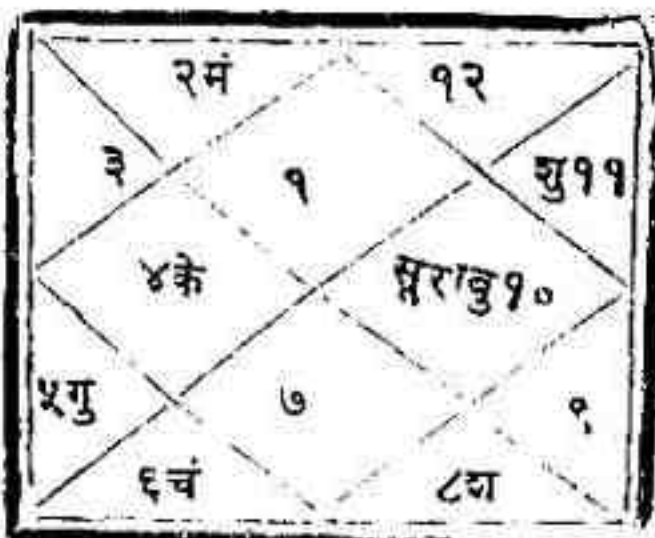 २मं १२
३ १ शु११
४के सूराबु१०
५गु ७ ९
६चं ८श